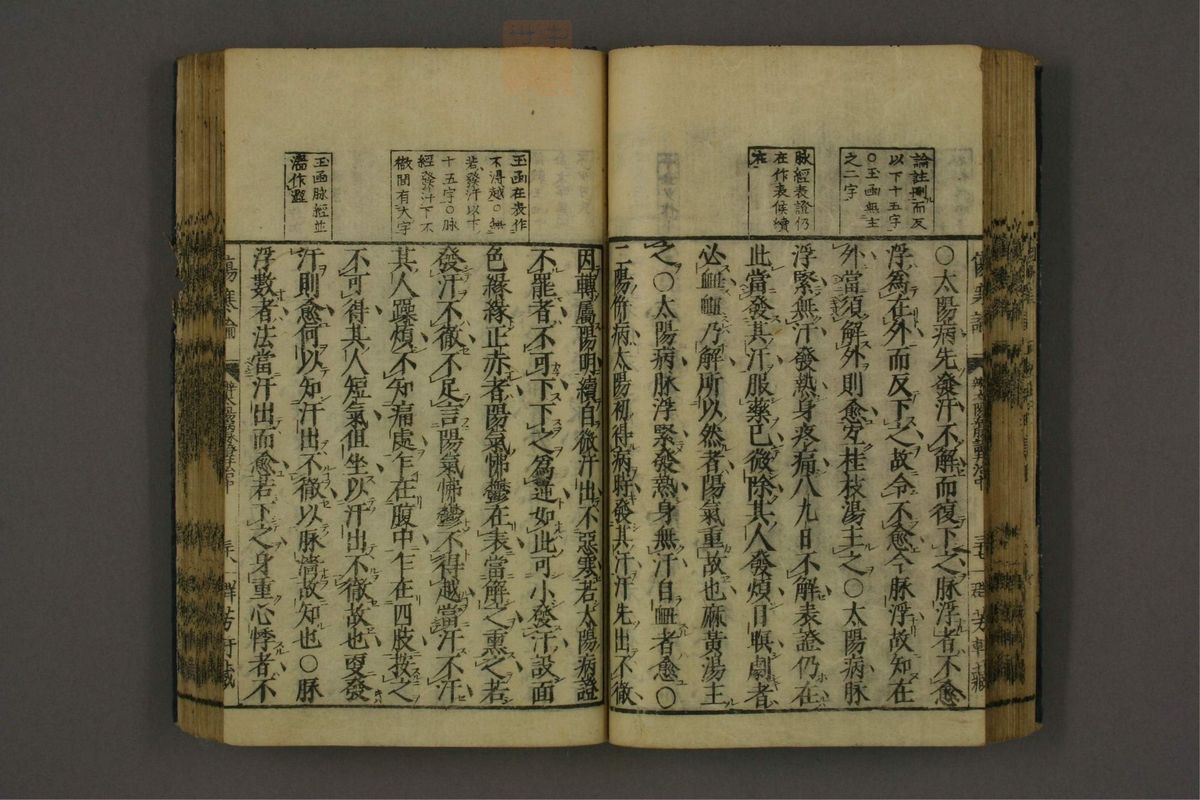 論註刪而反
以下十五字
○玉函無主
之二字
脉經表證仍
在作表候續
在
○太陽病先發汗不解而復下之脉浮者不愈
浮爲在外而反下之故令不愈今脉浮故知在
外當須解外則愈宜桂枝湯主之○太陽病脉
浮緊無汗發熱身疼痛八九日不解表證仍在
此當發其汗服藥已微除其人發煩目瞑劇者
必衄衄乃解所以然者陽氣重故也麻黃湯主
之○太陽病脉浮緊發熱身無汗自衄者愈○
二陽併病太陽初得病時發其汗汗先出不徹
傷寒論
群芳軒藏
玉函在表作
不得越○無
若發汗以下
十五字○脉
經發汗下不
徹間有大字
玉函脉經並
濇作澀
因轉屬陽明續自微汗出不惡寒若太陽病證
不罷者不可下下之爲逆如此可小發汗設面
色緣緣正赤者陽氣怫鬱在表當解之熏之若
發汗不徹不足言陽氣怫鬱不得越當汗不汗
其人躁煩不知痛處乍在腹中乍在四肢按之
不可得其人短氣但坐以汗出不徹故也更發
汗則愈何以知汗出不徹以脉濇故知也○脉
浮數者法當汗出而愈若下之身重心悸者不
傷寒論